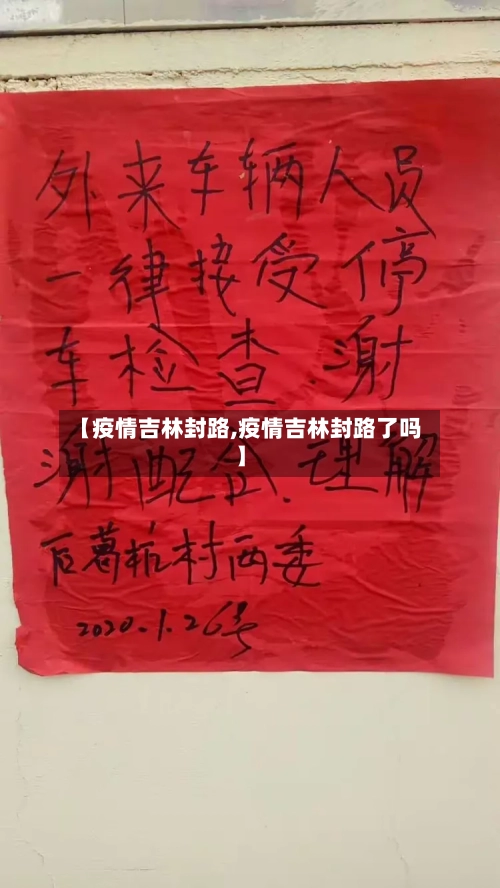 外来车辆人员
一律接受停
车检查.谢
【疫情吉林封路,疫情吉林封路了吗
】
谢配合.理解
后葛杭村两委
2020.1.26号